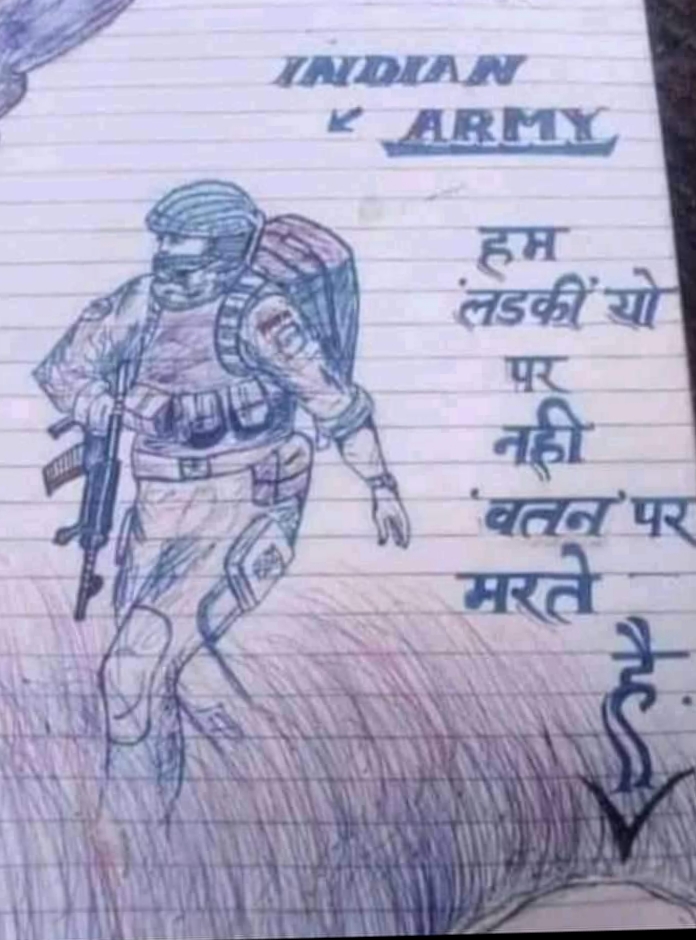 INDIAN
ARMY
हम
'लडकीं' यो
पर
नही
'वतन' पर
मरते
है